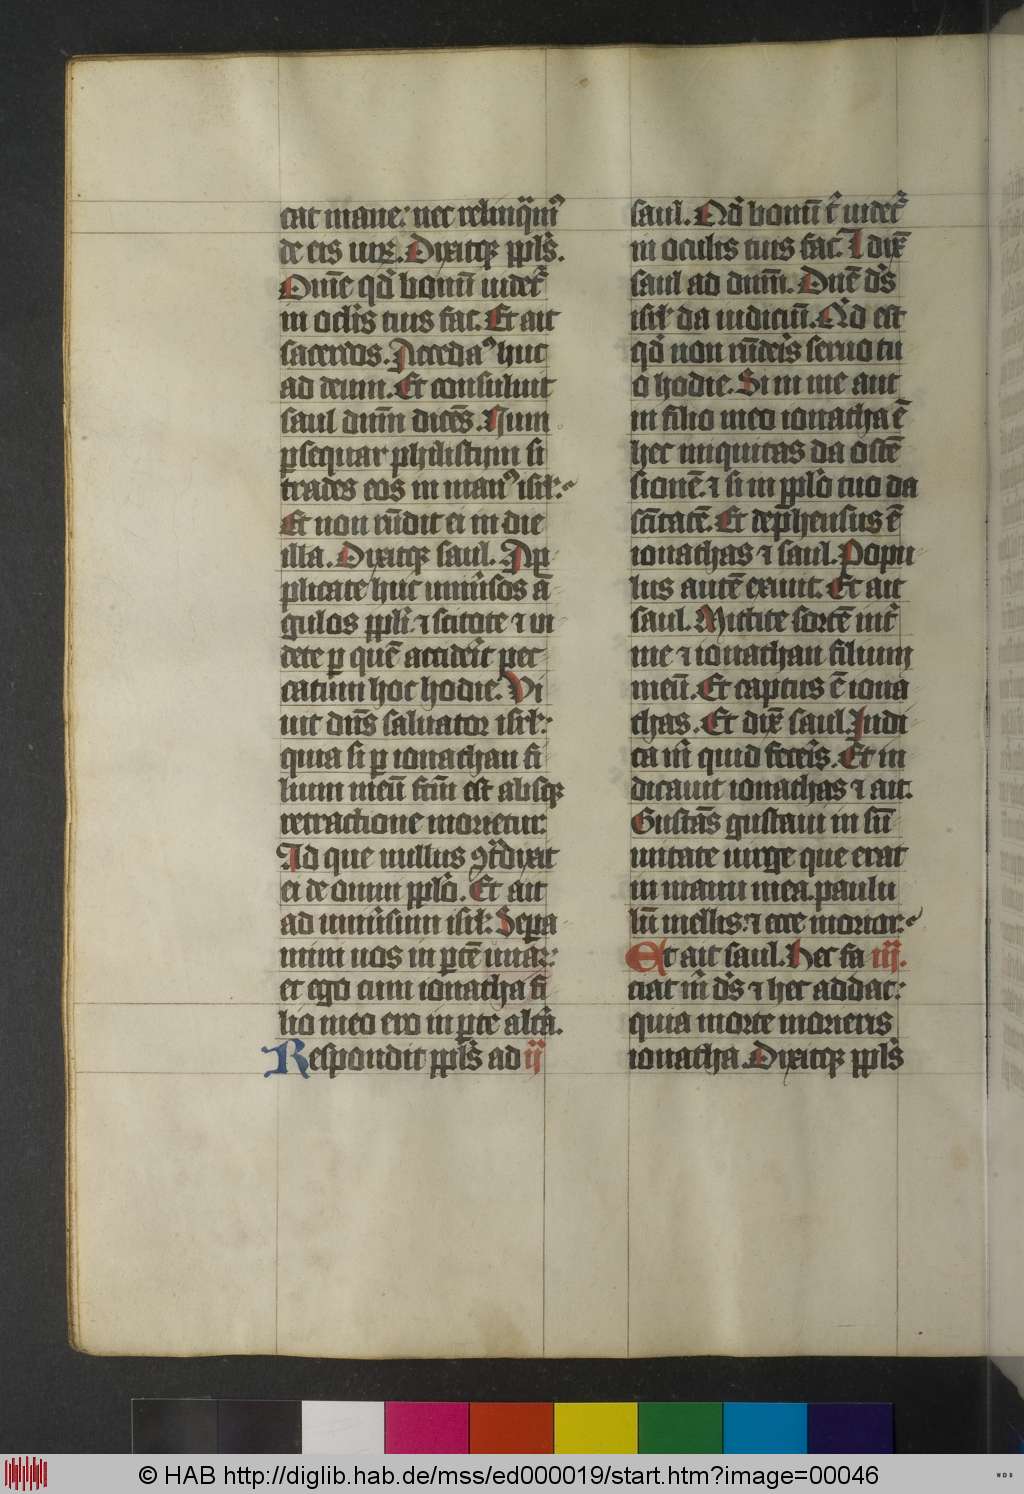 cat mane: nec relinq̄mꝰ
de eis uirū. Dixitqꝫ ppl's.
Om̄e qd' bonū uidet᷑
in oclīs tuis fac. Et ait
sacerdos. Accedamꝰ huc
ad deum. Et consuluit
saul dn̄m dicēs. Num
ꝑsequar philistiim si
trades eos in manꝰ isrl':
Et non rn̄dit ei in die
illa. Dixitqꝫ saul. Ap
plicate huc uniu'sos ā
gulos ppl'i ⁊ scitote ⁊ ui
dete ꝑ quē accid'it pec
catum hoc hodie. Vi
uit dn̄s saluator isrl':
quia si ꝑ ionathan fi
lium meū fc̄m est absqꝫ
retractione morietur.
Ad que nullus ꝯt̄dixit
ei de omni ppl'o. Et ait
ad uniu'sum isrl': Sepa
mini uos in ꝑtē unā:
et ego cum ionatha fi
lio meo ero in ꝑte alt'a.
Respondit ppl's ad ij
saul. Qd' bonū t' uidet᷑
in oculis tuis fac. I dix̄
saul ad dn̄m. Dn̄e d's
isrl' da iudiciū. Qd' est
qd' non rn̄deris seruo tu
o hodie. Si in me aut
in filio meo ionatha ē
hec iniquitas da ostē
sionē. ⁊ si in ppl'o tuo da
sc̄itatē. Et dep̄hensus ē
ionathas ⁊ saul. Popu
lus autē exiuit. Et ait
saul. Mittite sortē int'
me ⁊ ionathan filium
meū. Et captus ē iona
thas. Et dix̄ saul. Iudi
ca m' quid fecer's. Et in
dicauit ionathas ⁊ ait.
Gustās gustaui in sū
mitate uirge que erat
in manu mea. paulu
lū mellis. ⁊ ecce morior.
Et ait saul. Hec fa iij.
ciat m' d's ⁊ hec addat:
quia morte morieris
ionatha. Dixitqꝫ ppl's
© HAB http://diglib.hab.de/mss/ed000019/start.htm?image=00046